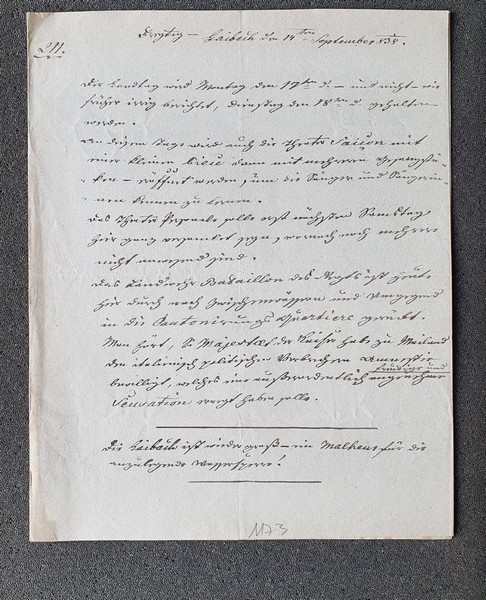 Freytag – Laibach den 14ten September 838.
211.
Der Landtag wird Montag den 17ten d. – und nicht – wie
früher irrig berichtet, Dienstag den 18ten d. gehalten
werden.
An diesem Tage wird auch die Theater Saison mit
einer kleinen Piece dann mit mehreren Gesangstü-
cken – eröffnet werden, um die Sänger und Sängerin-
nen kennen zu lernen.
Das Theater Personale solle erst nächsten Samstag
hier ganz versamelt seyn, wornach noch mehrere
nicht anwesend sind.
Das Landwehr Bataillon des Regts ist heute
hier durch nach und Umgegend
in die Cantonirungs Quartiere gerückt.
Man hört, Se Majestaet der Kaiser habe zu Mailand
den italienisch politischen Verbrechern Amnestie
freudige und
bewilligt, welches eine außerordentlich angenehme
Sensation erregt haben solle.
Die Laibach ist wieder groß – ein Malheur für die
anzulegende Wassersperre!
1173